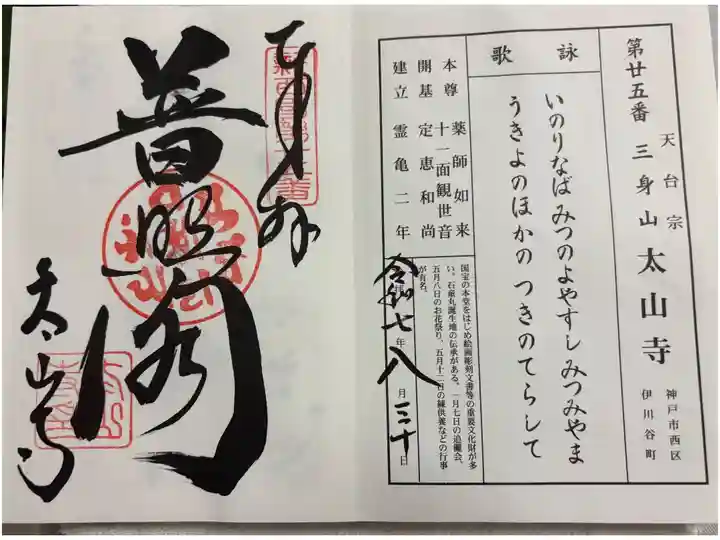 第廿五番 天台宗 三身山 太山寺 神戸市西区伊川谷町
詠歌
いのりなば みつのよやすし みつみやま
うきよのほかの つきのてらして
本尊 薬師如来
十一面観世音
開基 定恵和尚
建立 霊亀二年
国宝の本堂をはじめ絵画彫刻文書等の重要文化財が多
い。石童丸誕生地の伝承がある。一月七日の追儺会、
五月八日のお花祭り、五月十二日の練供養などの行事
が有名。
令和七年八月三十日
奉拝
普照閣
太山寺